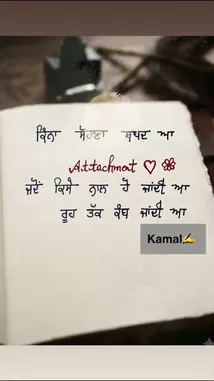 ਕਿੰਨਾ ਸੋਹਣਾ ਸ਼ਬਦ ਆ
Attachment ♡
ਜਦੋਂ ਕਿਸੇ ਨਾਲ ਹੋ ਜਾਂਦੀ ਆ
ਰੂਹ ਤੱਕ ਕੰਬ ਜਾਂਦੀ ਆ
Kamal✍️